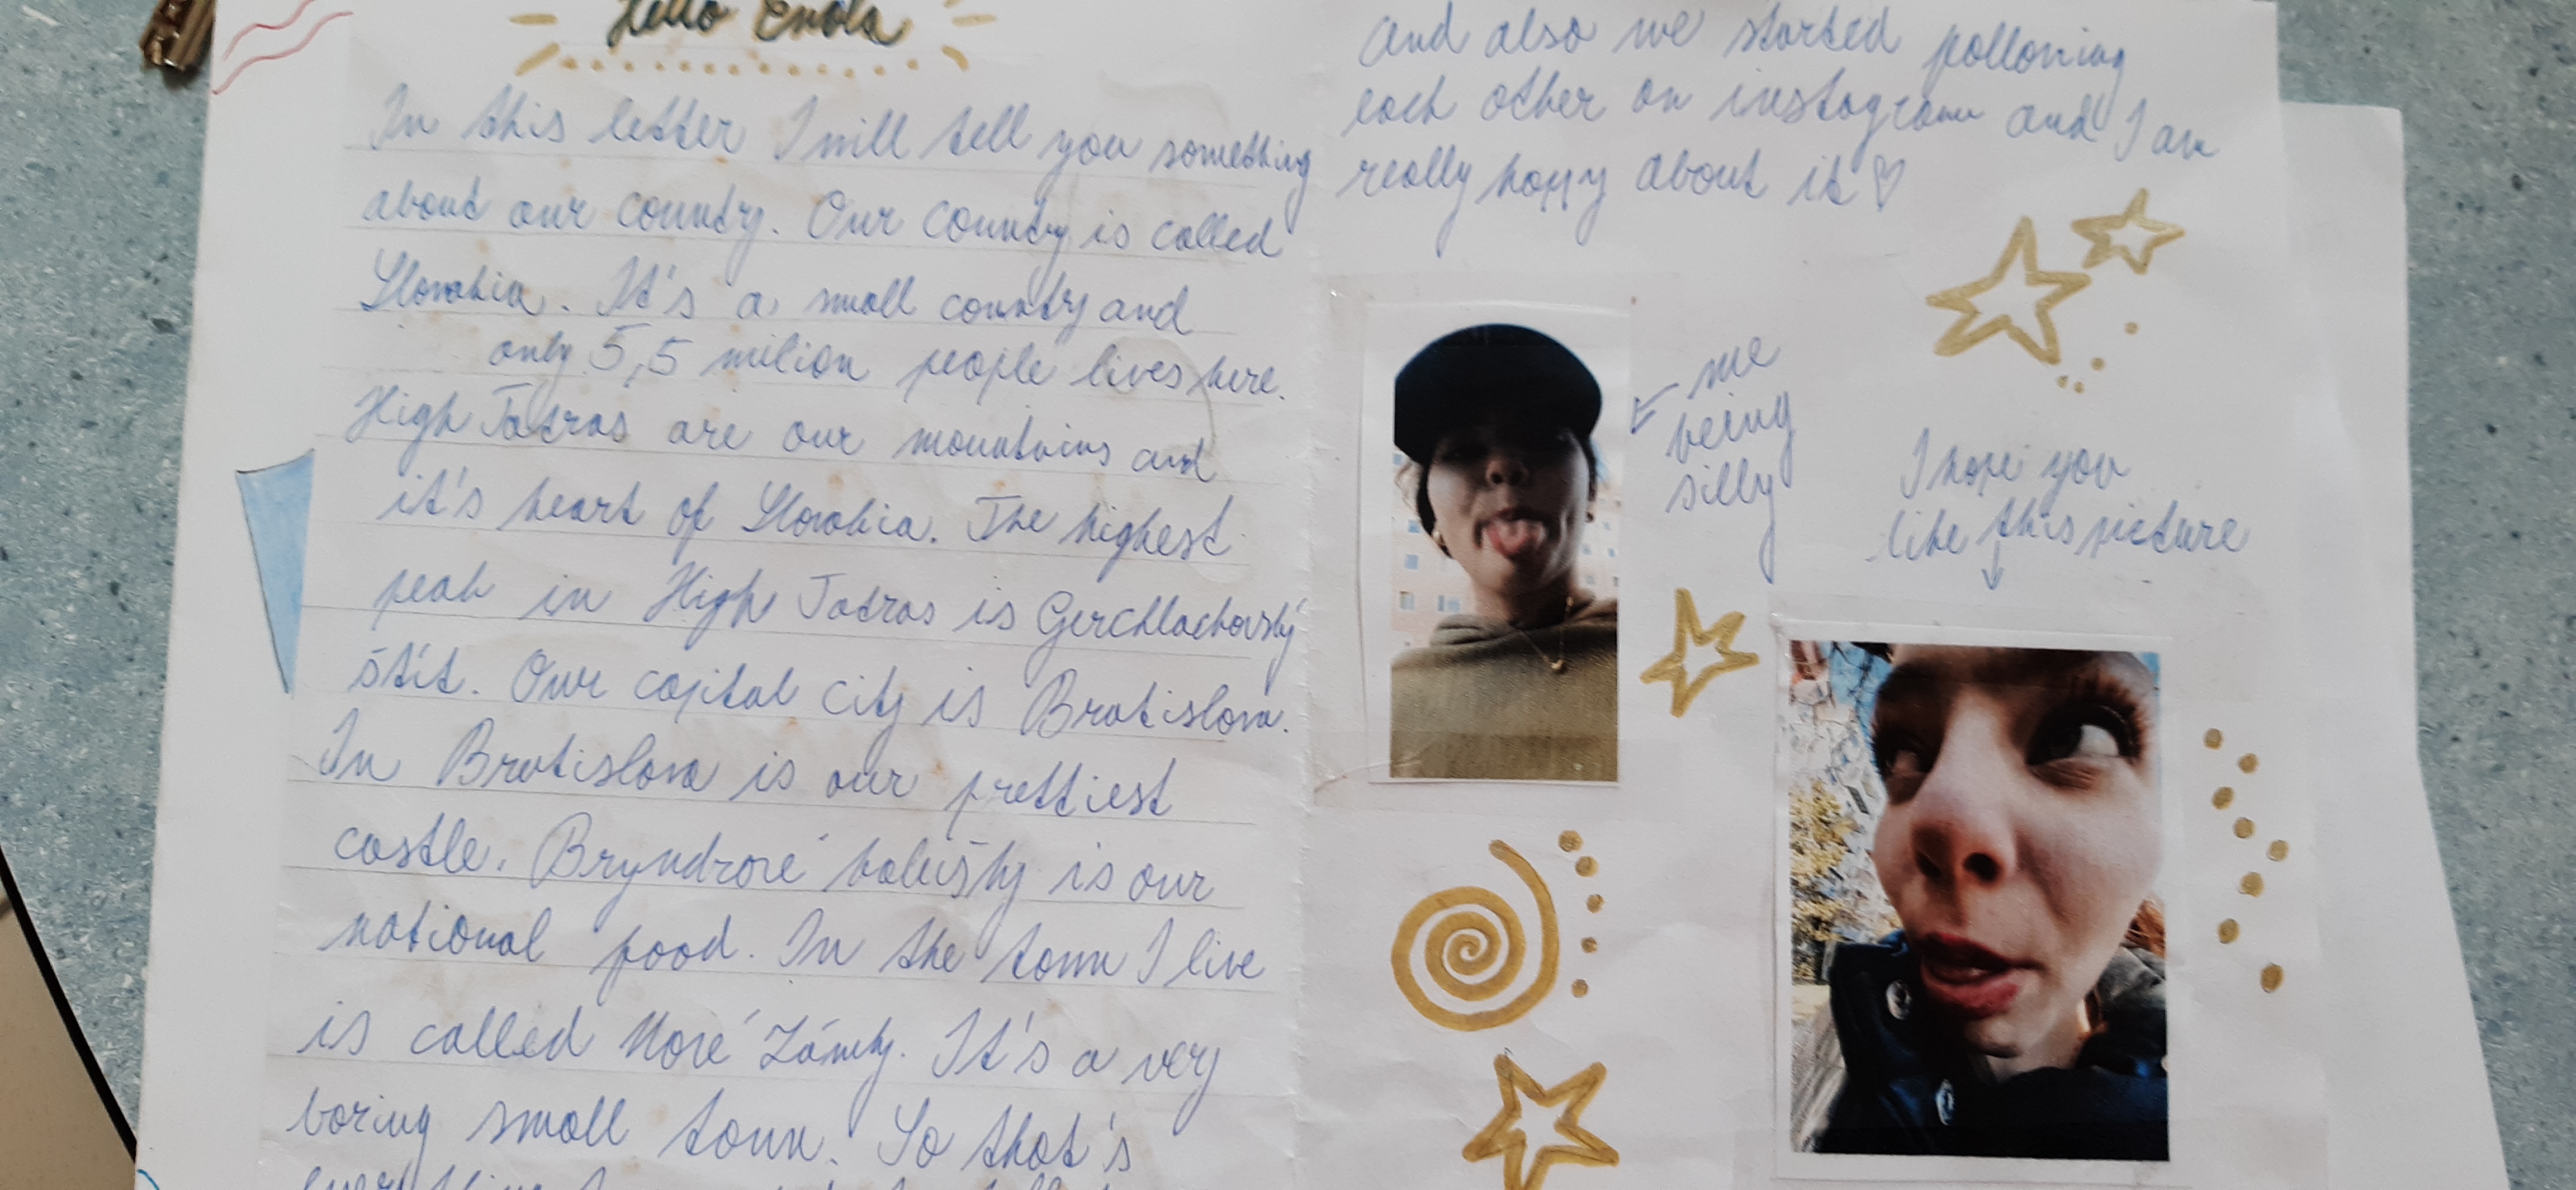 Hello Enola
In this letter I will tell you something
about our country. Our country is called
Slovakia. It's a small country and
only 5,5 milion people lives here.
High Tatras are our mountains and
it's heart of Slovakia. The highest
peak in High Tatras is Gerchlachovský
štít. Our capital city is Bratislava.
In Bratislava is our prettiest
castle. Bryndzové halušky is our
national food. In the town I live
is called Nové Zámky. It's a very
boring small town. So that's
and also we started following
each other on instagram and I am
really happy about it ♡
me
being
silly
I hope you
like this picture